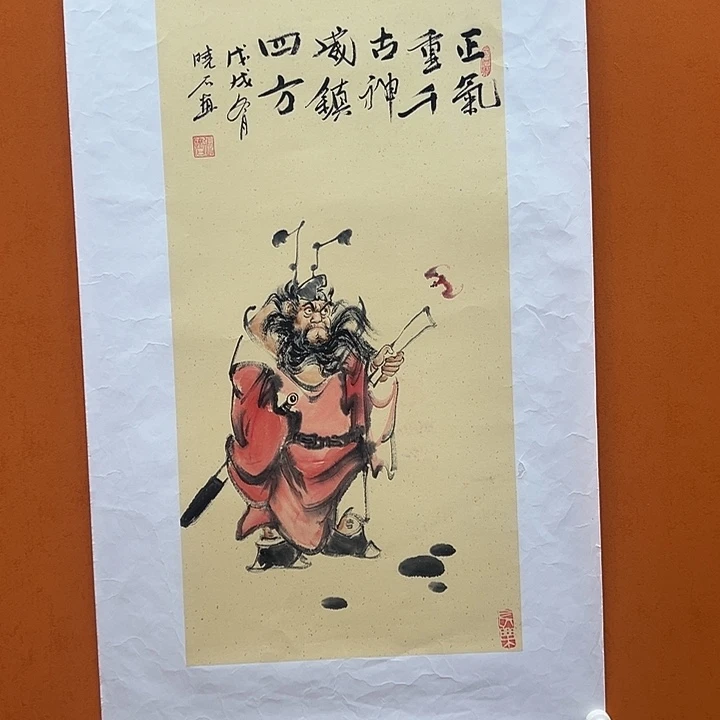 正氣
重千
古神
威鎮
四方
戊戌冬月
晓石